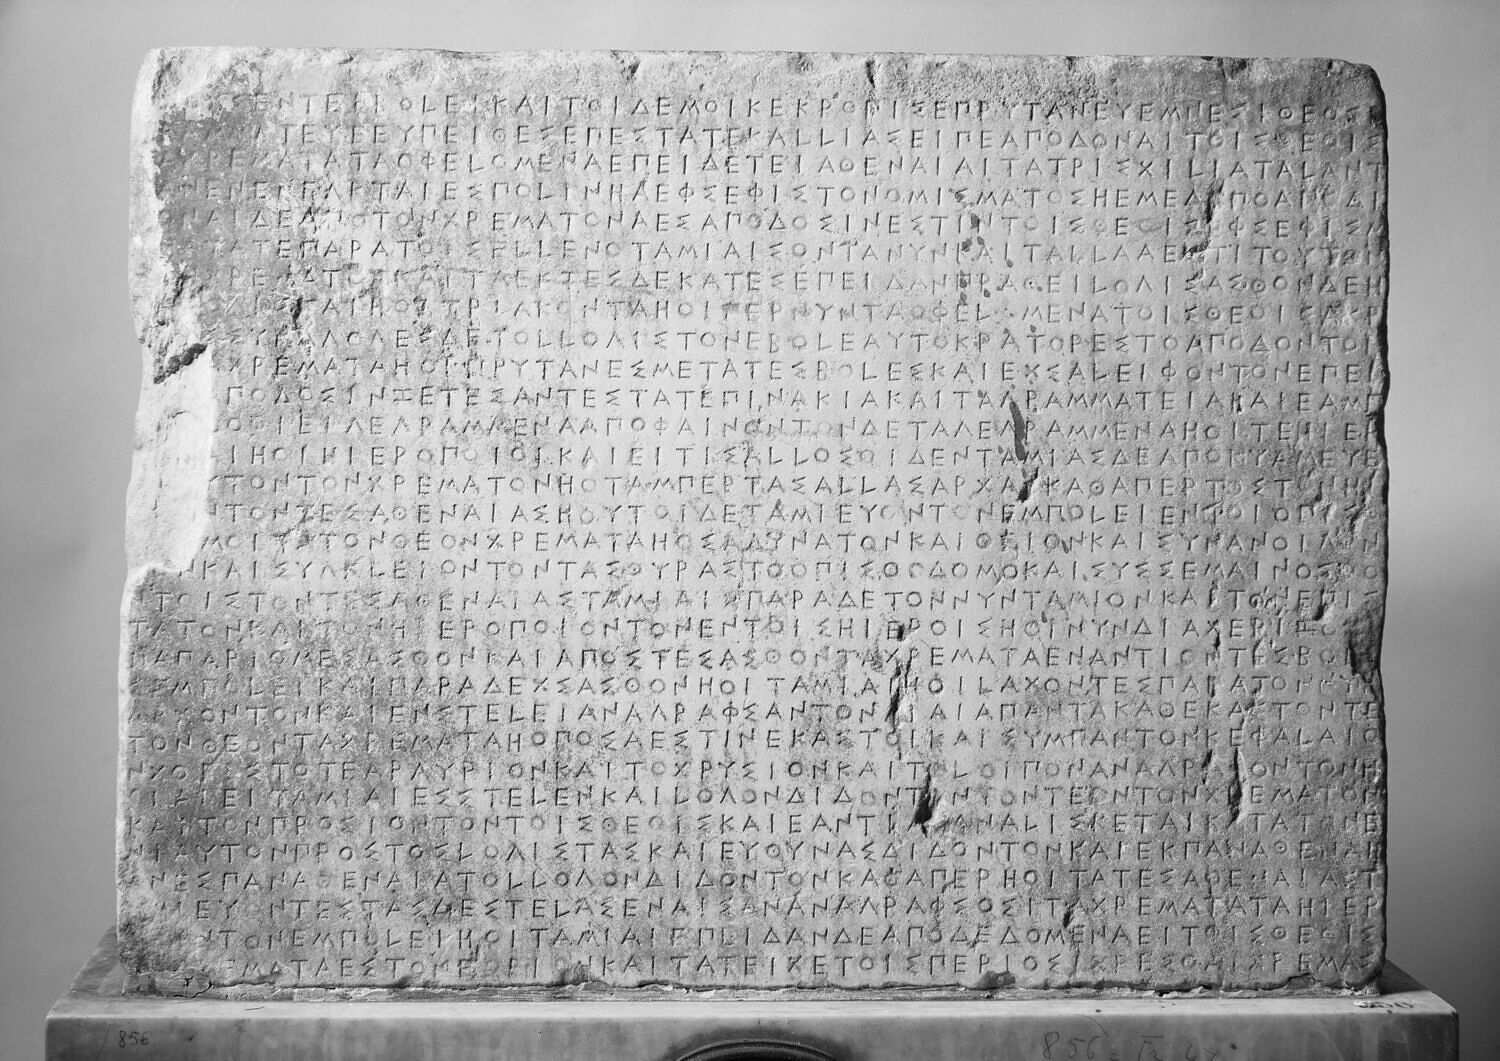 ΣΕΝΤΕΙΒΟLΕΙΚΑΙΤΟΙΔΕΜΟΙΚΕΚΡΟΠΙΣΕΠΡΥΤΑΝΕΥΕΜΝΕΣΙΘΕΟΣΕ
ΑΤΕΥΕΕΥΠΕΙΘΕΣΕΠΕΣΤΑΤΕΚΑLLΙΑΣΕΙΠΕΑΠΟΔΟΝΑΙΤΟΙΣΘΕΟΙΣ
ΧΡΕΜΑΤΑΤΑΟΦΕLΟΜΕΝΑΕΠΕΙΔΕΤΕΙΑΘΕΝΑΙΑΙΤΑΤΡΙΣΧΙLΙΑΤΑLΑΝΤ
ΑΝΕΝΕΝΕΛΚΤΑΙΕΣΠΟLΙΝΗΑΕΦΣΕΦΙΣΤΟΝΟΜΙΣΜΑΤΟΣΗΕΜΕΔΑΠΟΑΠΟΔΙ
ΟΝΑΙΔΕΑΠΟΤΟΝΧΡΕΜΑΤΟΝΗΑΕΣΑΠΟΔΟΣΙΝΕΣΤΙΝΤΟΙΣΘΕΟΙΣΕΦΣΕΦΙΣΜ
ΤΑΤΕΠΑΡΑΤΟΙΣΕLLΕΝΟΤΑΜΙΑΙΣΟΝΤΑΝΥΝΚΑΙΤΑLLΑΑΕΣΤΙΤΟΥΤΟΝ
ΧΡΕΜΑΤΟΝΚΑΙΤΑΕΚΤΕΣΔΕΚΑΤΕΣΕΠΕΙΔΑΝΠΡΑΘΕΙLΟΛΙΣΑΣΘΟΝΔΕΗ
ΟΛΙΣΤΑΙΗΟΙΤΡΙΑΚΟΝΤΑΗΟΙΠΕΡΝΥΝΤΑΟΦΕLΟΜΕΝΑΤΟΙΣΘΕΟΙΣΑΚΡ
ΣΥΝΑΛΟΛΕΣΔΕΤΟLLΟΛΙΣΤΟΝΕΒΟLΕΑΥΤΟΚΡΑΤΟΡΕΣΤΟΑΠΟΔΟΝΤΟΝ
ΧΡΕΜΑΤΑΗΟΙΠΡΥΤΑΝΕΣΜΕΤΑΤΕΣΒΟLΕΣΚΑΙΕΧΣΑLΕΙΦΟΝΤΟΝΕΠΕΙ
ΠΟΔΟΣΙΝΖΕΤΕΣΑΝΤΕΣΤΑΤΕΠΙΝΑΚΙΑΚΑΙΤΑΛΡΑΜΜΑΤΕΙΑΚΑΙΕΑΜΠ
LΟΘΙΕΙΛΕΛΡΑΜΜΕΝΑΑΠΟΦΑΙΝΟΝΤΟΝΔΕΤΑΛΕΛΡΑΜΜΕΝΑΗΟΙΤΕΗΙΕΡ
ΑΙΗΟΙΗΙΕΡΟΠΟΙΟΙΚΑΙΕΙΤΙΣΑLLΟΣΟΙΔΕΝΤΑΜΙΑΣΔΕΑΠΟΚΥΑΜΕΥΕ
ΥΤΟΝΤΟΝΧΡΕΜΑΤΟΝΗΟΤΑΜΠΕΡΤΑΣΑLLΑΣΑΡΧΑΣΚΑΘΑΠΕΡΤΟΣΤΟΝΗΙ
ΝΤΟΝΤΕΣΑΘΕΝΑΙΑΣΗΟΥΤΟΙΔΕΤΑΜΙΕΥΟΝΤΟΝΕΜΠΟLΕΙΕΝΤΟΙΟΠΙΣΘ
ΜΟΙΤΑΤΟΝΘΕΟΝΧΡΕΜΑΤΑΗΟΣΑΔΥΝΑΤΟΝΚΑΙΟΣΙΟΝΚΑΙΣΥΝΑΝΟΙΛΟΝ
ΝΚΑΙΣΥΛΚLΕΙΟΝΤΟΝΤΑΣΘΥΡΑΣΤΟΟΠΙΣΘΟΔΟΜΟΚΑΙΣΥΣΣΕΜΑΙΝΟΣΘΟ
ΤΟΙΣΤΟΝΤΕΣΑΘΕΝΑΙΑΣΤΑΜΙΑΙΣΠΑΡΑΔΕΤΟΝΝΥΝΤΑΜΙΟΝΚΑΙΤΟΝΕΠΙΣ
ΤΑΤΟΝΚΑΙΤΟΝΗΙΕΡΟΠΟΙΟΝΤΟΝΕΝΤΟΙΣΗΙΕΡΟΙΣΗΟΙΝΥΝΔΙΑΧΕΡΙΖΟ
ΑΠΑΡΙΘΜΕΣΑΣΘΟΝΚΑΙΑΠΟΣΤΕΣΑΣΘΟΝΤΑΧΡΕΜΑΤΑΕΝΑΝΤΙΟΝΤΕΣΒΟL
ΣΕΜΠΟLΕΙΚΑΙΠΑΡΑΔΕΧΣΑΣΘΟΝΗΟΙΤΑΜΙΑΙΗΟΙLΑΧΟΝΤΕΣΠΑΡΑΤΟΝΝΥΝ
ΑΡΧΟΝΤΟΝΚΑΙΕΝΣΤΕLΕΙΑΝΑΛΡΑΦΣΑΝΤΟΝΜΙΑΙΑΠΑΝΤΑΚΑΘΕΚΑΣΤΟΝΤΕ
ΤΟΝΘΕΟΝΤΑΧΡΕΜΑΤΑΗΟΠΟΣΑΕΣΤΙΝΕΚΑΣΤΟΙΚΑΙΣΥΜΠΑΝΤΟΝΚΕΦΑLΑΙΟ
ΝΧΟΡΙΣΤΟΤΕΑΡΛΥΡΙΟΝΚΑΙΤΟΧΡΥΣΙΟΝΚΑΙΤΟLΟΙΠΟΝΑΝΑΛΡΑΦΟΝΤΟΝΗ
ΟΙΑΙΕΙΤΑΜΙΑΙΕΣΣΤΕLΕΝΚΑΙLΟΛΟΝΔΙΔΟΝΤΟΝΤΟΝΤΕΟΝΤΟΝΧΡΕΜΑΤΟΝ
ΚΑΙΤΟΝΠΡΟΣΙΟΝΤΟΝΤΟΙΣΘΕΟΙΣΚΑΙΕΑΝΤΙΑΠΑΝΑLΙΣΚΕΤΑΙΚΑΤΑΤΟΝΕ
ΝΙΑΥΤΟΝΠΡΟΣΤΟΣLΟΛΙΣΤΑΣΚΑΙΕΥΘΥΝΑΣΔΙΔΟΝΤΟΝΚΑΙΕΚΠΑΝΑΘΕΝΑΙΟ
ΝΕΣΠΑΝΑΘΕΝΑΙΑΤΟLLΟΛΟΝΔΙΔΟΝΤΟΝΚΑΘΑΠΕΡΗΟΙΤΑΤΕΣΑΘΕΝΑΙΑΣΤ
ΙΕΥΟΝΤΕΣΤΑΣΔΕΣΤΕLΑΣΕΝΑΙΣΑΝΑΝΑΛΡΑΦΣΟΣΙΤΑΧΡΕΜΑΤΑΤΑΗΙΕΡ
ΝΤΟΝΕΜΠΟLΕΙΗΟΙΤΑΜΙΑΙΕΠΕΙΔΑΝΔΕΑΠΟΔΕΔΟΜΕΝΑΕΙΤΟΙΣΘΕΟΙΣ
ΕΜΑΤΑΕΣΤΟΝΕΟΡΙΟΝΚΑΙΤΑΤΕΙΧΕΤΟΙΣΠΕΡΙΟΣΙΧΡΕΣΘΑΙΧΡΕΜΑΣ
856